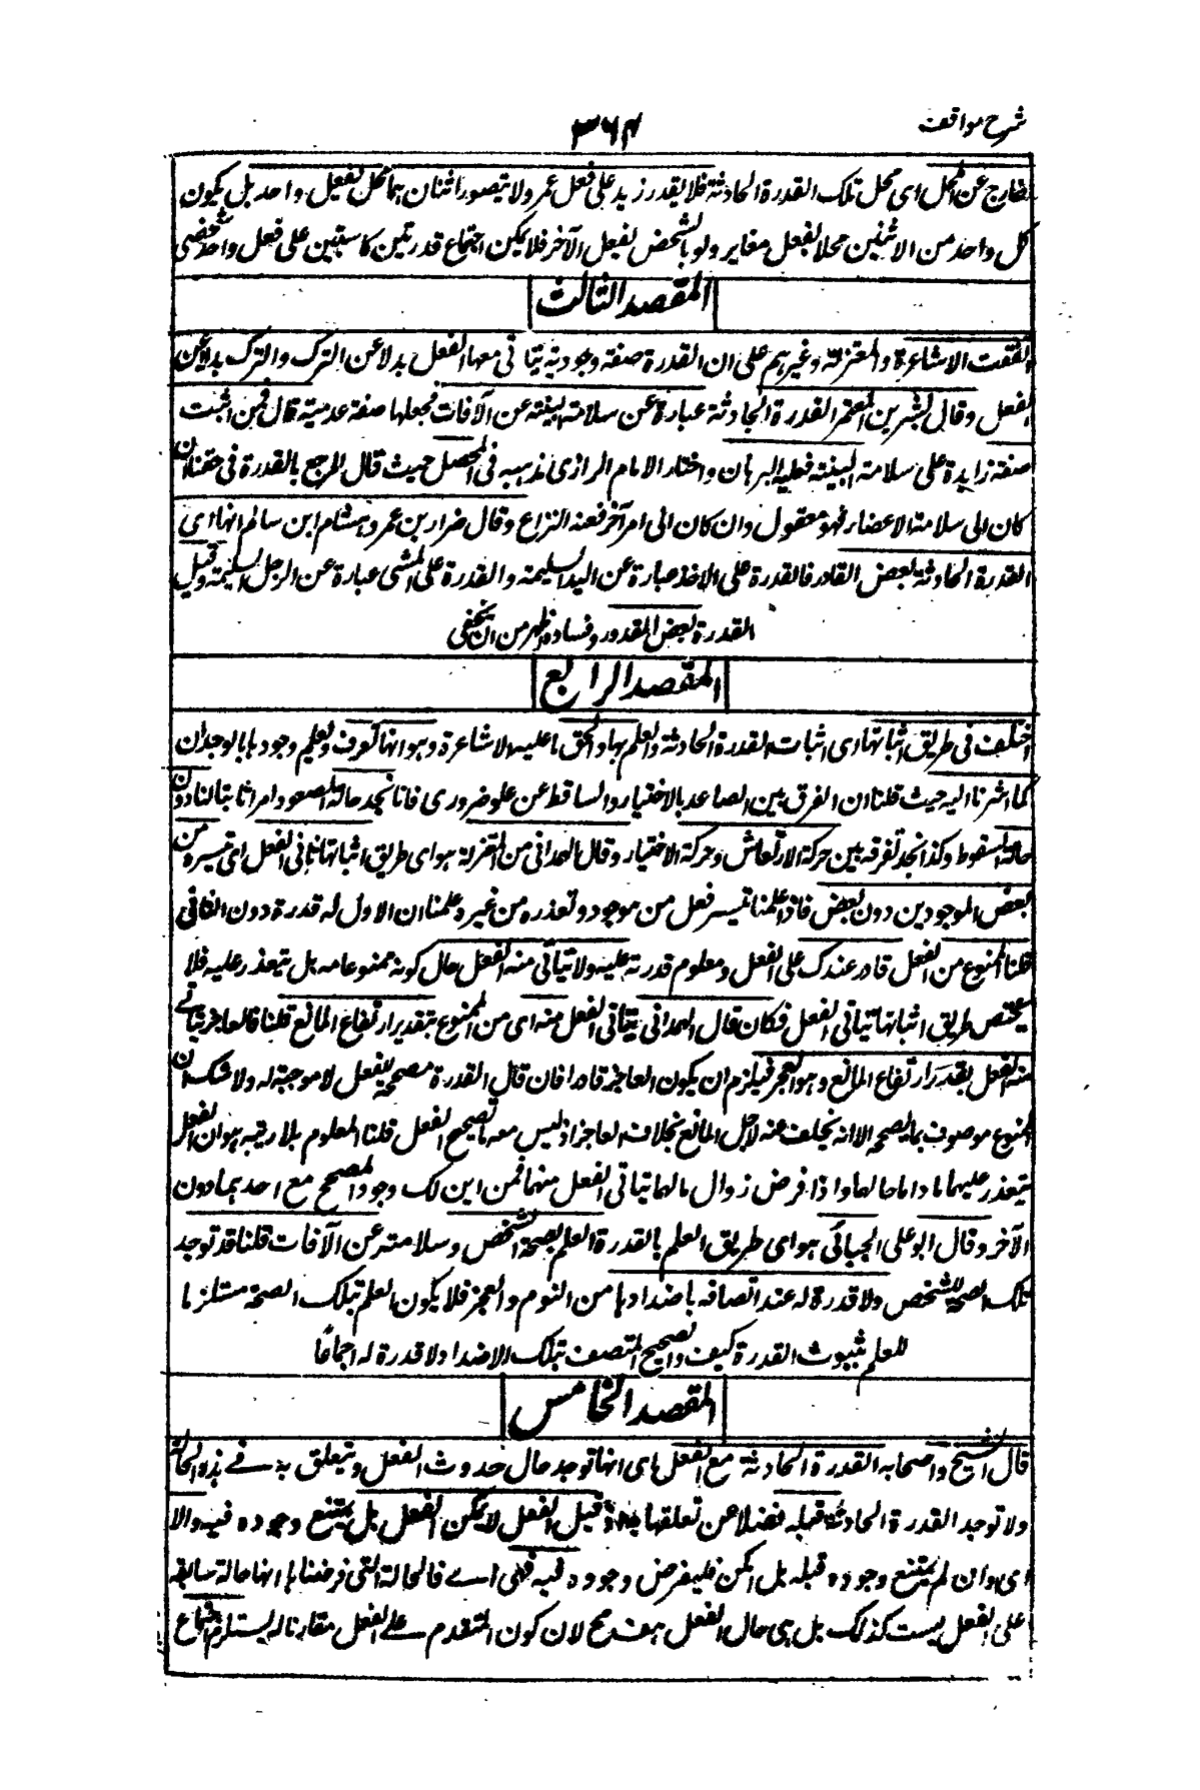 شرح مواقف
٣٦٤
الخارج عن المحل اى محل تلك القدرة الحادثة فلا يقدر زيد على فعل عمر ولا يتصور اثنان هما محل لفعل واحد بل يكون
كل واحد من الاثنين محلا لفعل مغاير ولو بالشخص لفعل الآخر فلا يمكن اجتماع قدرتين كاسبتين على فعل واحد شخصى
المقصد الثالث
اتفقت الاشاعرة والمعتزلة وغيرهم على ان القدرة صفة وجودية يتأتى معها الفعل بدلا عن الترك والترك بدلا عن
الفعل وقال بشر بن المعتمر القدرة الحادثة عبارة عن سلامة البنية عن الآفات فجعلها صفة عدمية قال فمن اثبت
صفة زايدة على سلامة البنية فعليه البرهان واختار الامام الرازى مذهبه فى المحصل حيث قال المرجع بالقدرة فى حقنا ان
كان الى سلامة الاعضاء فهو معقول وان كان الى امر آخر ففيه النزاع وقال ضرار بن عمرو وهشام ابن سالم انها اى
القدرة الحادثة بعض القادر فالقدرة على الاخذ عبارة عن اليد السليمة والقدرة على المشى عبارة عن الرجل السليمة وقيل
القدرة بعض المقدور وفساده اظهر من ان يخفى
المقصد الرابع
اختلف فى طريق اثباتها اى اثبات القدرة الحادثة والعلم بها والحق ما عليه الاشاعرة وهو انها تعرف ويعلم وجودها بالوجدان
كما اشرنا اليه حيث قلنا ان الفرق بين الصاعد بالاختيار والساقط عن علو ضرورى فانا نجد حالة الصعود امرا ثابتا لنا دون
حالة السقوط وكذا نجد تفرقة بين حركة الارتعاش وحركة الاختيار وقال الهمدانى من المعتزلة هو اى طريق اثباتها تأتى الفعل اى تيسره من
بعض الموجودين دون بعض فاذا علمنا تيسر فعل من موجود وتعذره من غيره علمنا ان الاول له قدرة دون الثانى
قلنا الممنوع من الفعل قادر عندك على الفعل ومعلوم قدرته عليه ولا يتأتى منه الفعل حال كونه ممنوعا منه بل يتعذر عليه فلا
يختص طريق اثباتها بتأتى الفعل فكان قال الهمدانى يتأتى الفعل منه اى من الممنوع بتقدير ارتفاع المانع قلنا فالعاجز يتأتى
منه الفعل بقدير ارتفاع المانع وهو العجز فيلزم ان يكون العاجز قادرا فان قال القدرة مصححة للفعل لا موجبة له ولا شك ان
الممنوع موصوف بما يصححه الا انه يخلف عنه لاجل المانع بخلاف العاجز اذ ليس معه ما يصحح الفعل قلنا المعلوم بلا ريبة هو ان الفعل
يتعذر عليهما ما داما بحالهما واذا فرض زوال ما لهما يتأتى الفعل منهما فمن اين لك وجود المصحح مع احدهما دون
الآخر وقال ابو على الجبائى هو اى طريق العلم بالقدرة العلم بصحة الشخص وسلامته عن الآفات قلنا قد توجد
تلك الصحة للشخص ولا قدرة له عند اتصافه باضدادها من النوم والعجز فلا يكون العلم بتلك الصحة مستلزما
للعلم بثبوت القدرة كيف والصحيح المتصف بتلك الاضداد لا قدرة له اجماعًا
المقصد الخامس
قال الشيخ واصحابه القدرة الحادثة مع الفعل اى انها توجد حال حدوث الفعل ويتعلق به فى هذه الحالة
ولا توجد القدرة الحادثة قبله فضلا عن تعلقها به اذ قبل الفعل لا يمكن الفعل بل يمتنع وجوده فيه والا
اى وان لم يمتنع وجوده قبله بل امكن فليفرض وجوده فيه فهى اى فالحالة التى فرضناها انها حالة سابقة
على الفعل ليست كذلك بل هى حال الفعل هف مح لان كون المتقدم على الفعل مقارنا له يستلزم اجتماع